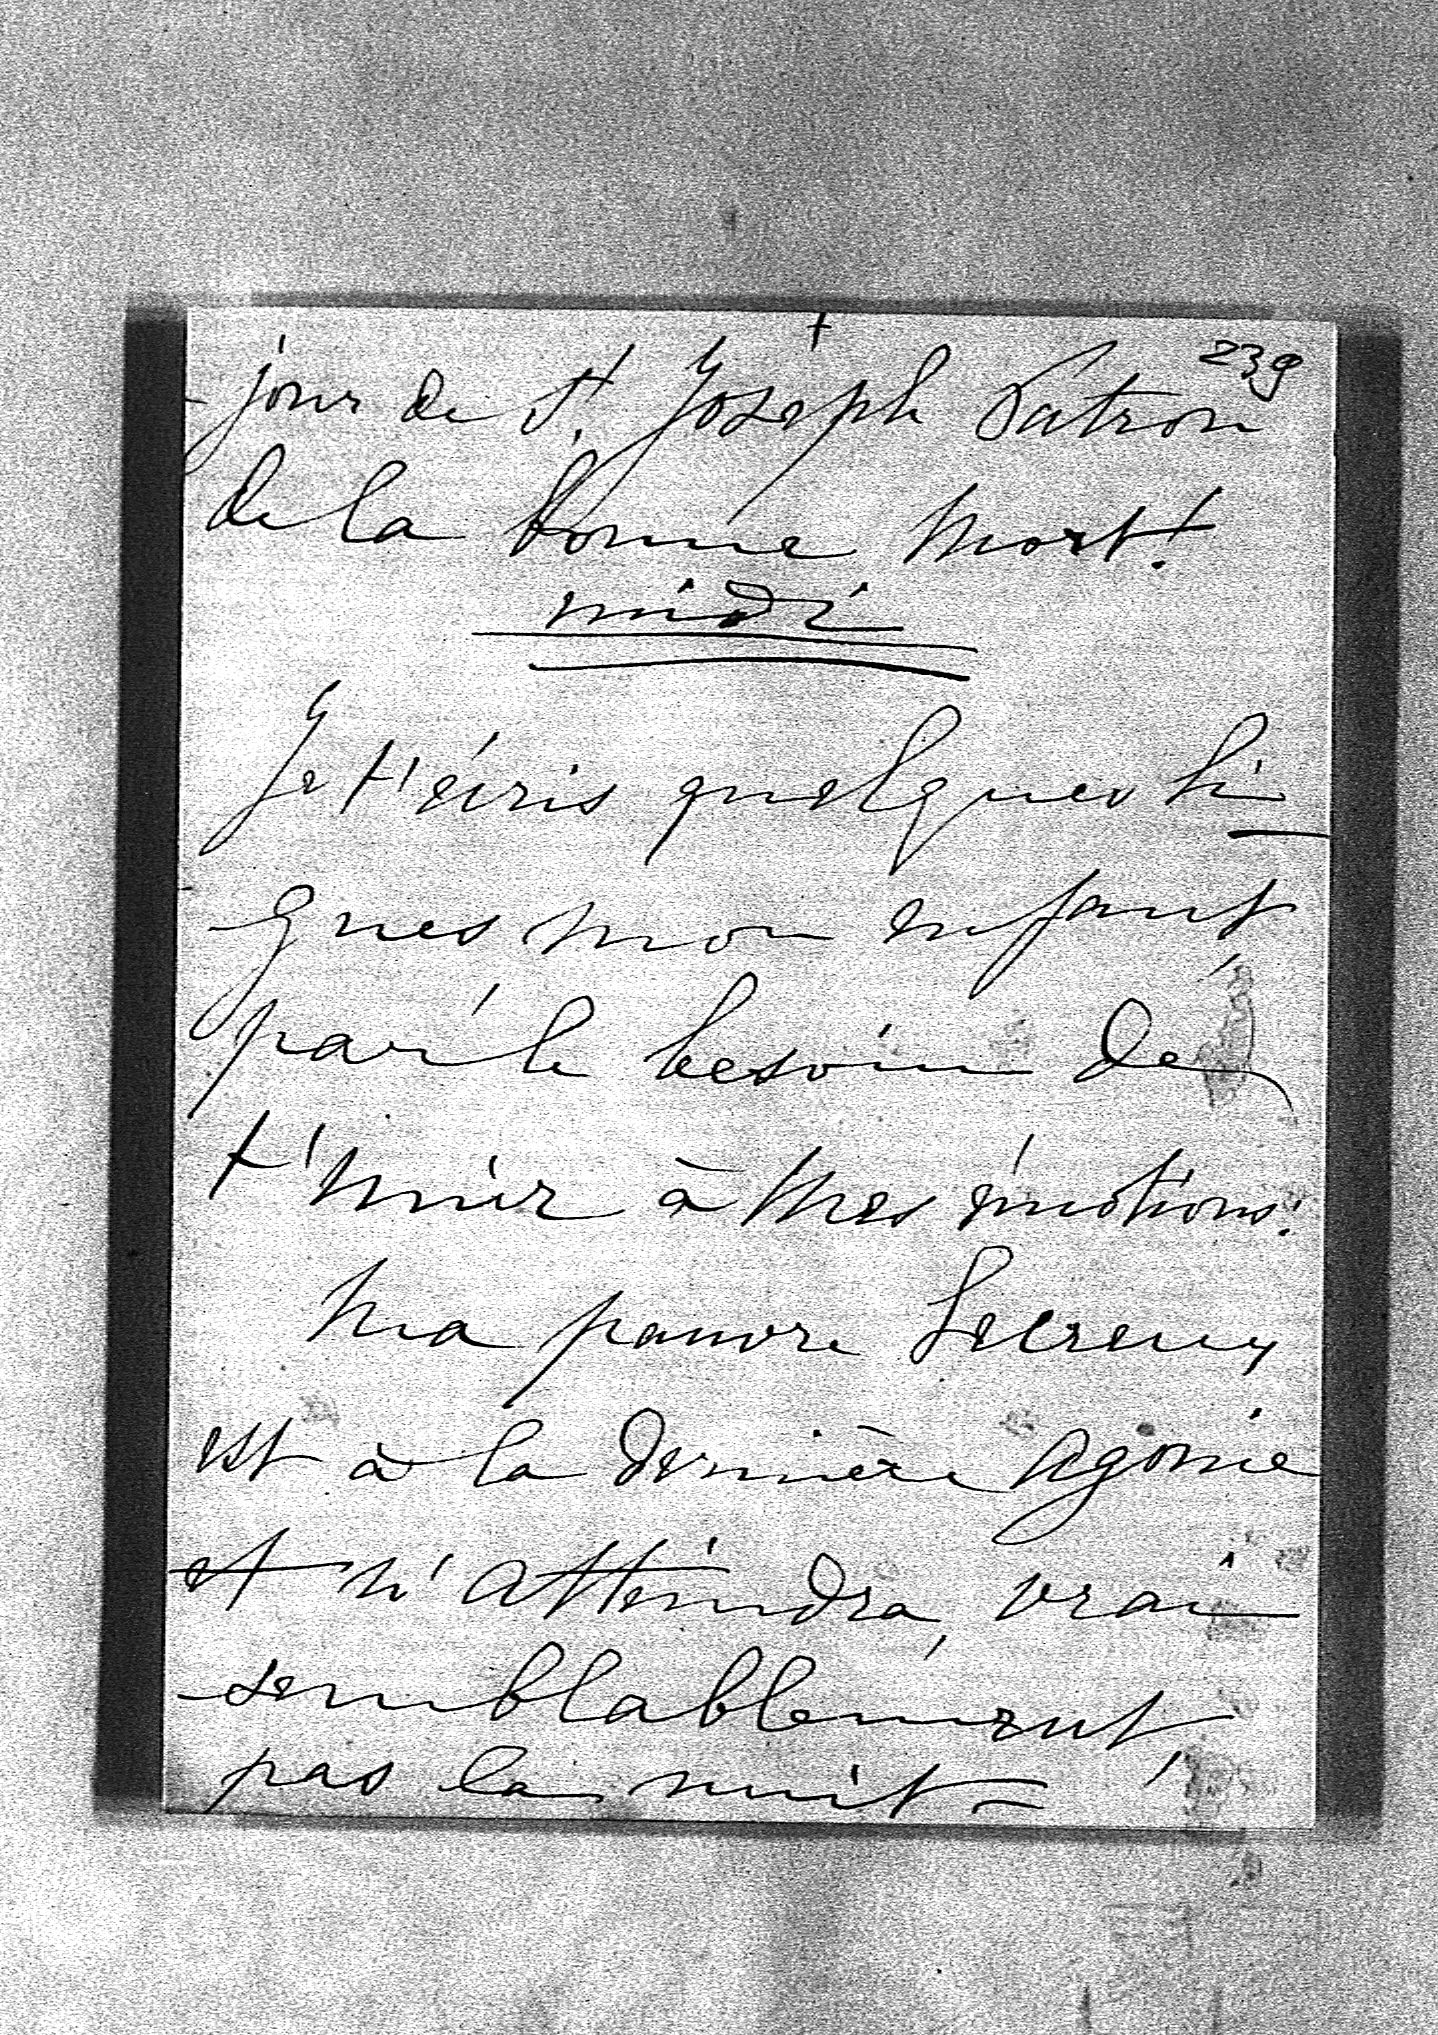 †
239
jour de St. Joseph Patron
de la bonne mort!
midi
Je t'écris quelques li-
gnes mon enfant
par le besoin de
t'unir à mes émotions!
Ma pauvre Lecreux
est à la dernière agonie
et n'atteindra, vrai
semblablement,
pas la nuit –